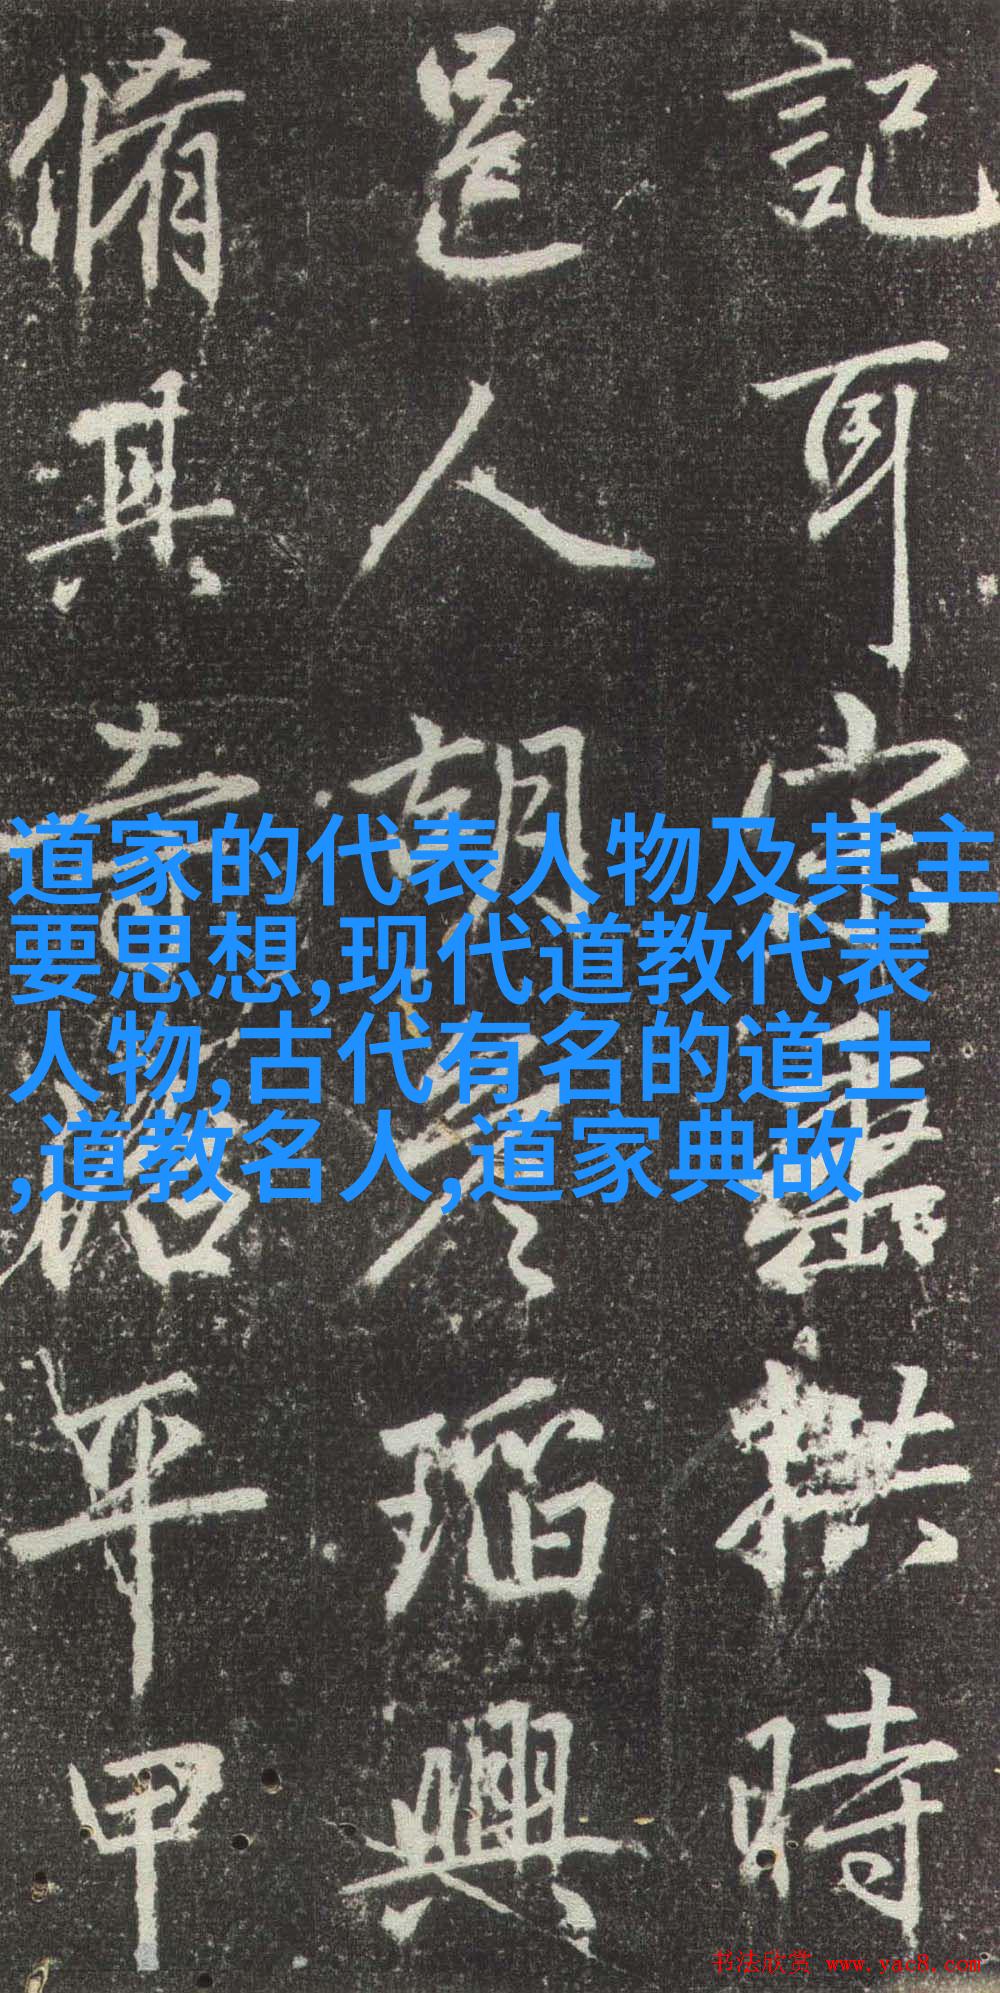 記耳宋
拱時
邑人胡
瑫興
脩其
平甲
道家的代表人物及其主
要思想,现代道教代表
人物,古代有名的道士
,道教名人,道家典故
书法欣赏 www.yac8.com